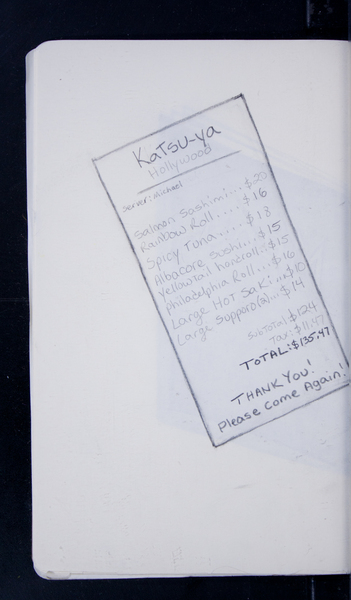 Katsu-ya
Hollywood
Server: Michael
Salmon Sashimi... $20
Rainbow Roll.... $16
Spicy Tuna..... $18
Albacore Sushi... $15
Yellowtail handroll.. $15
Philadelphia Roll... $16
Large Hot Saki... $10
Large Sapporo(2)... $14
SubTotal: $124
Tax: $11.47
TOTAL: $135.47
THANK YOU!
Please Come Again!